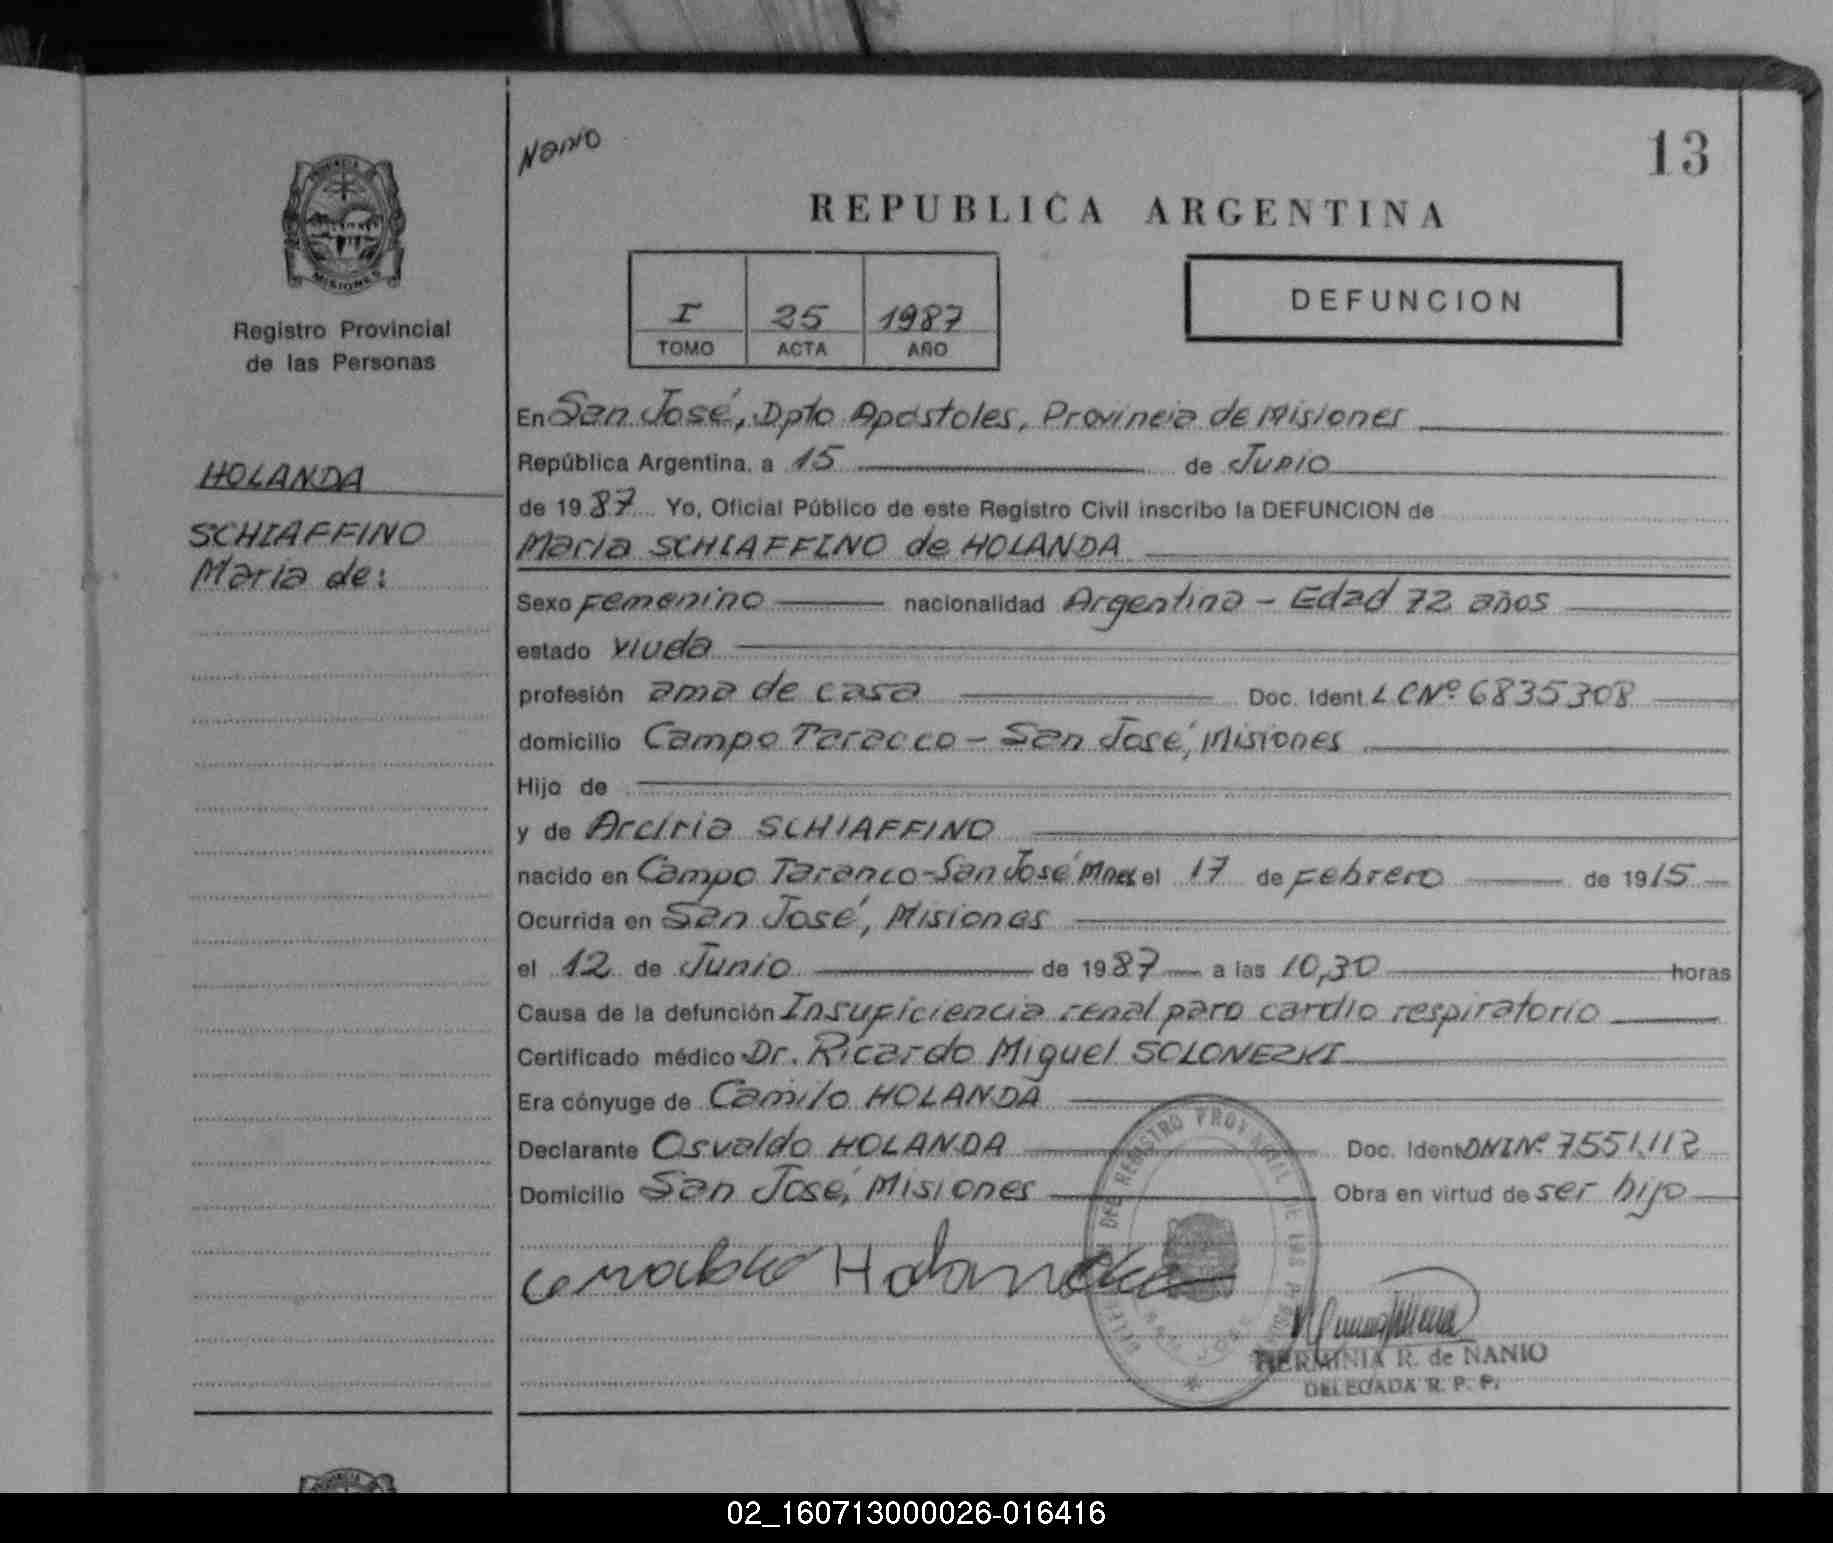 Nanio
13
REPUBLICA ARGENTINA
PROVINCIA
MISIONES
Registro Provincial
de las Personas
I 25 1987
TOMO ACTA AÑO
DEFUNCION
HOLANDA
SCHIAFFINO
Maria de:
En San José, Dpto Apostoles, Provincia de Misiones
República Argentina, a 15 de Junio
de 1987 Yo, Oficial Público de este Registro Civil inscribo la DEFUNCION de
Maria SCHIAFFINO de HOLANDA
Sexo Femenino nacionalidad Argentina - Edad 72 años
estado viuda
profesión ama de casa Doc. Ident. LC Nº 6835308
domicilio Campo Taracco - San José, Misiones
Hijo de
y de Arciria SCHIAFFINO
nacido en Campo Taranco - San José Mnes el 17 de Febrero de 1915
Ocurrida en San José, Misiones
el 12 de Junio de 1987 a las 10,30 horas
Causa de la defunción Insuficiencia renal paro cardio respiratorio
Certificado médico Dr. Ricardo Miguel SOLONEZKI
Era cónyuge de Camilo HOLANDA
Declarante Osvaldo HOLANDA Doc. Ident DNI Nº 7551.112
Domicilio San José, Misiones Obra en virtud de ser hijo
Holanda
REGISTRO PROVINCIAL DE LAS
HERMINIA R. de NANIO
DELEGADA R. P. P.
02_160713000026-016416